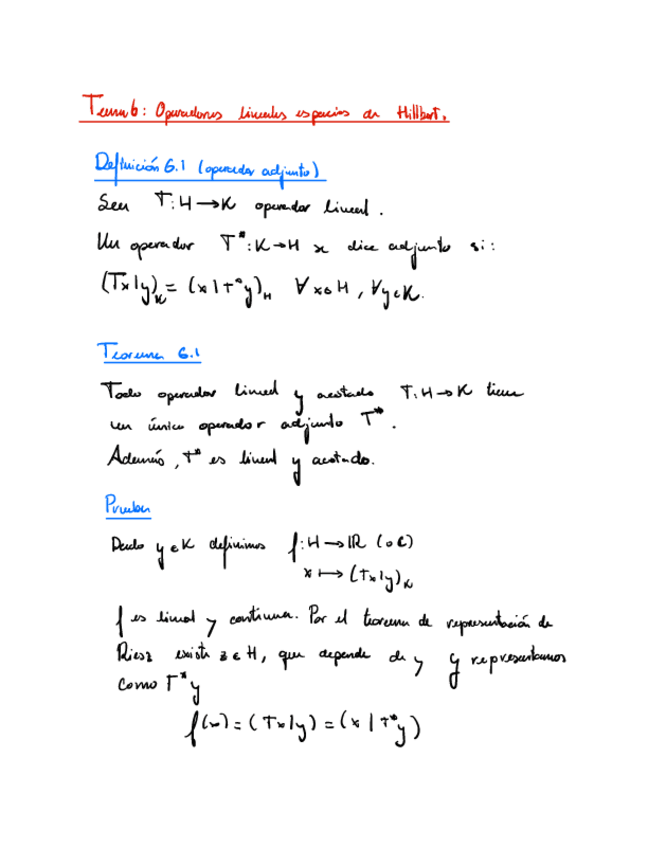 Tema 6: Operadores lineales espacios de Hillbert.
Definición 6.1 (operador adjunto)
Sea T: H → K operador lineal.
Un operador T*: K → H se dice adjunto si:
(Tx|y)_K = (x|T*y)_H ∀ x ∈ H, ∀ y ∈ K.
Teorema 6.1
Todo operador lineal y acotado T: H → K tiene
un único operador adjunto T*.
Además, T* es lineal y acotado.
Prueba
Dado y ∈ K definimos f: H → ℝ (o ℂ)
x ↦ (Tx|y)_K
f es lineal y continua. Por el teorema de representación de
Riesz existe z ∈ H, que depende de y y representamos
como T*y
f(x) = (Tx|y) = (x | T*y)